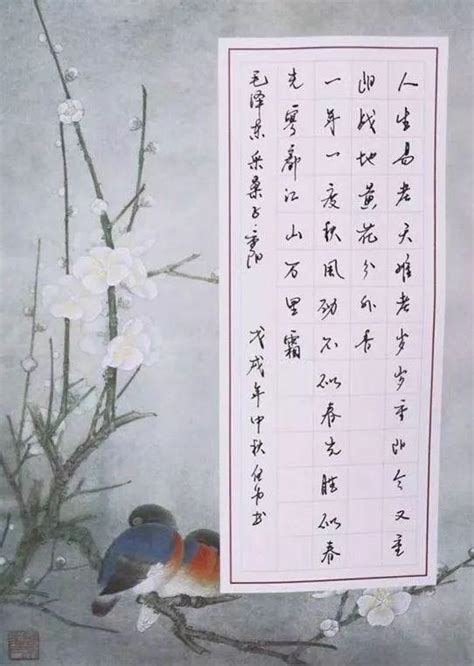 人生易老天难老岁岁重阳今又重
阳战地黄花分外香
一年一度秋风劲不似春光胜似春
光寥廓江山万里霜
毛泽东采桑子·重阳 戊戌年中秋书